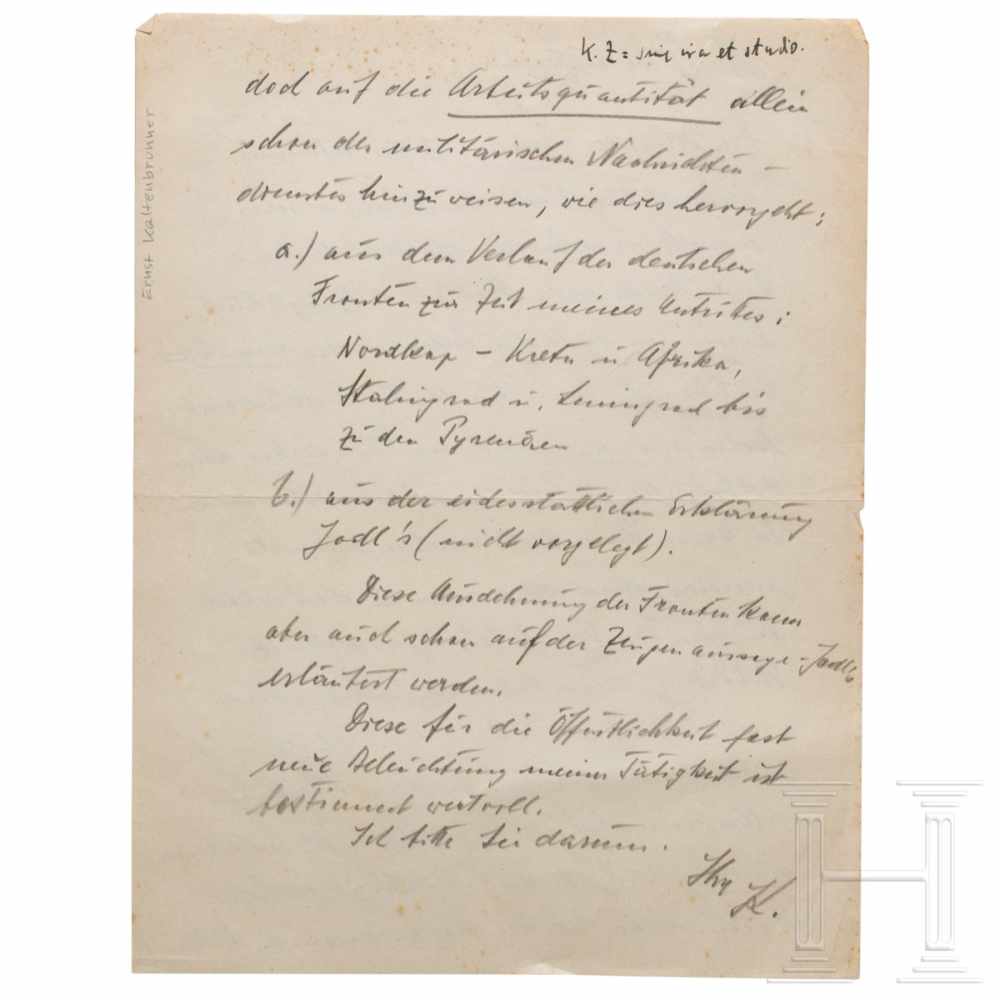 K. Z = sine ira et studio.
doch auf die Arbeitsquantität allein
schon des militärischen Nachrichten-
dienstes hinzuweisen, wie dies hervorgeht:
a.) aus dem Verlauf der deutschen
Fronten zur Zeit meines Antrittes:
Nordkap - Kreta u Afrika,
Stalingrad u. Leningrad bis
zu den Pyrenäen
b.) aus der eidesstattlichen Erklärung
Jodl's (nicht vorgelegt).
Diese Ausdehnung der Fronten kann
aber auch schon auf der Zeugenaussage-Jodls
erläutert werden.
Diese für die Öffentlichkeit fast
neue Beleuchtung meiner Tätigkeit ist
bestimmt wertvoll.
Ich bitte Sie darum.
Ihr K.
Ernst Kaltenbrunner
H